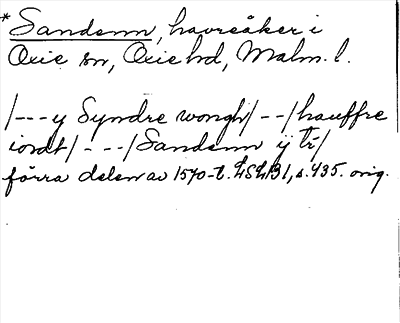 *Sandenn, havreåker i
Oxie sn, Oxie hd, Malm. l.
/--- y Syndre wongh/ --/hauffre
iordt/ - --/Sandenn ij tr/
förra delen av 1570-t. LSLB1, s. 435. orig.